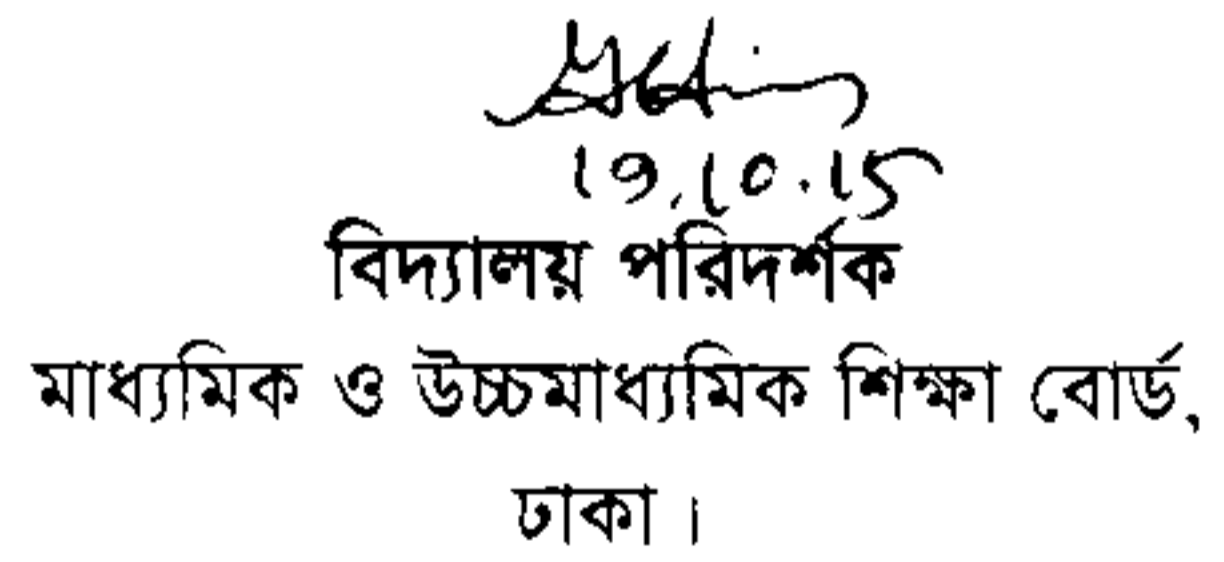 19.10.15
বিদ্যালয় পরিদর্শক
মাধ্যমিক ও উচ্চমাধ্যমিক শিক্ষা বোর্ড,
ঢাকা ।